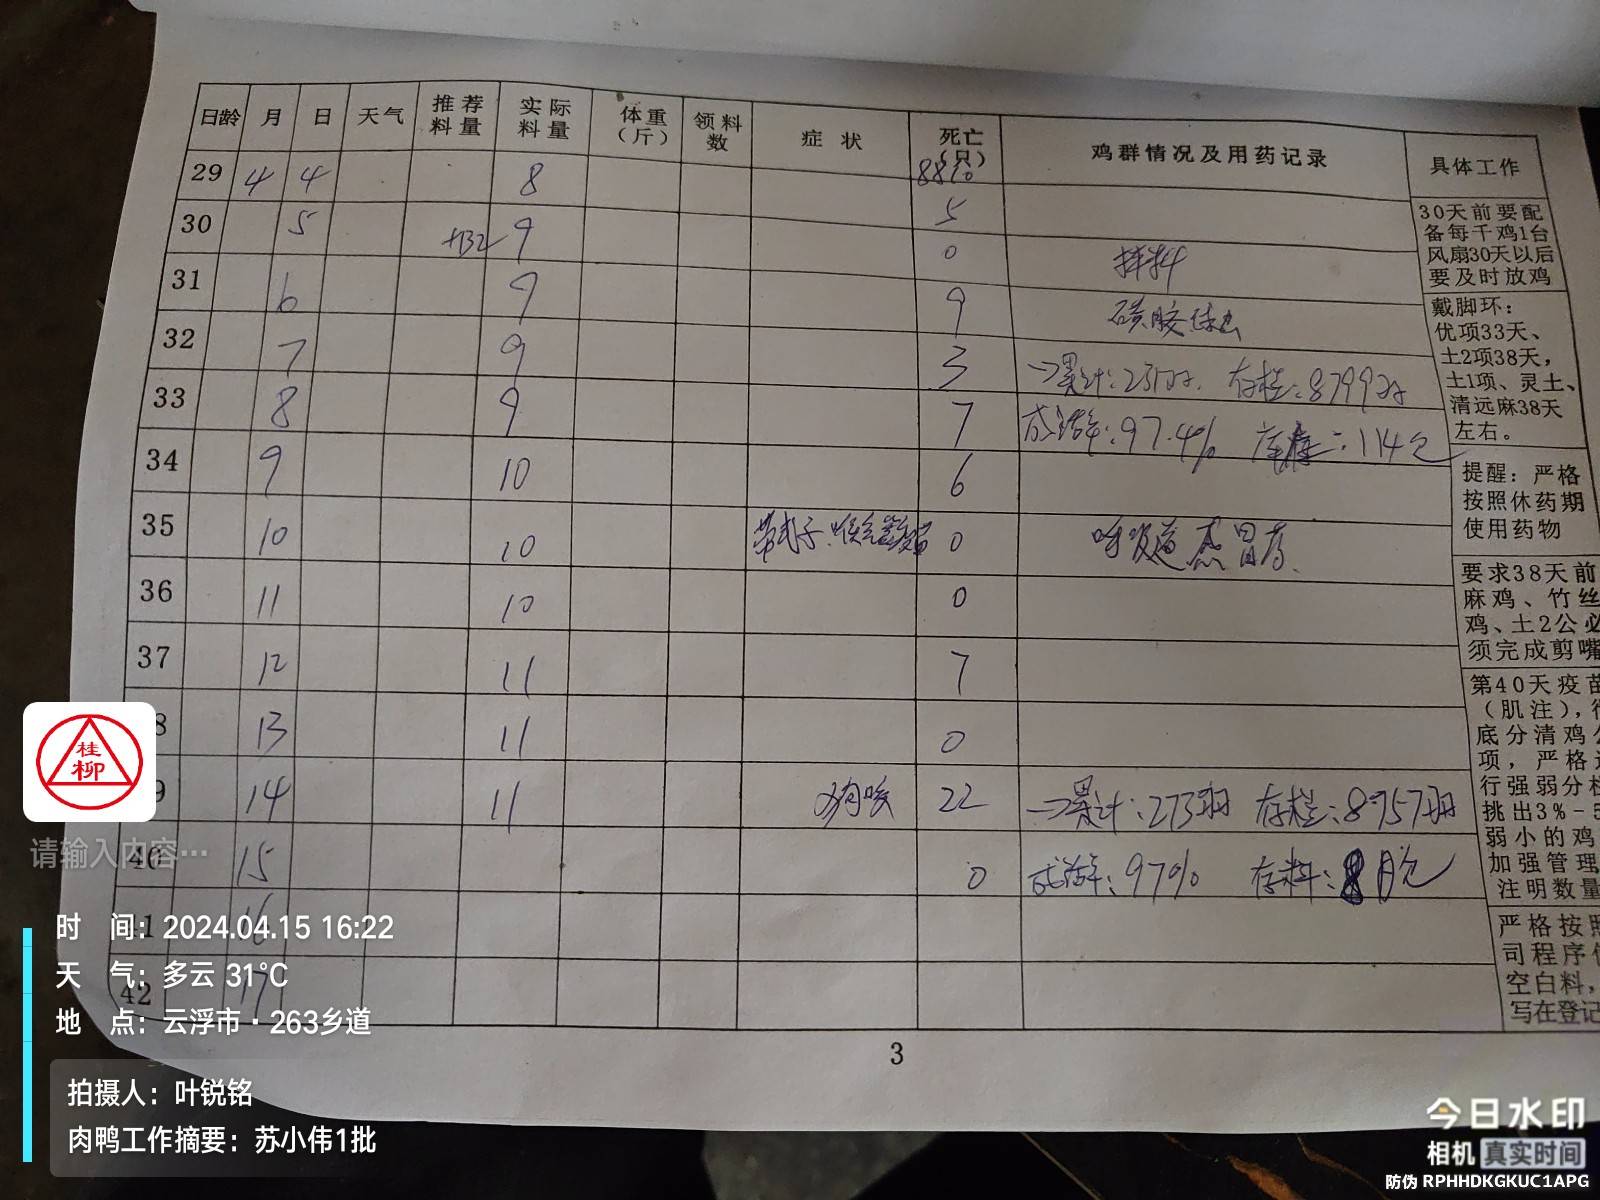 日龄 月 日 天气 推荐料量 实际料量 体重（斤） 领料数 症 状 死亡（只） 鸡群情况及用药记录 具体工作
29 4 4 8 5
30 5 9 0 拌料
31 6 9 9
32 7 9 3 →累计:231只. 存栏:8799只
33 8 9 7 成活率:97.4% 114包
34 9 10 6
35 10 10 0 呼吸道感冒药.
36 11 10 0
37 12 11 7
8 13 11 0
9 14 11 咳 22 →累计:273羽 存栏:8757羽
40 15 0 成活率:97% 存料:8
41 16
42 17
30天前要配
备每千鸡1台
风扇30天以后
要及时放鸡
戴脚环：
优项33天、
土2项38天，
土1项、灵土、
清远麻38天
左右。
提醒：严格
按照休药期
使用药物
要求38天前
麻鸡、竹丝
鸡、土2公必
须完成剪嘴
第40天疫苗
（肌注），
底分清鸡
项，严格
行强弱分栏
挑出3%-5
弱小的鸡
加强管理
注明数量
严格按照
司程序
空白料，
写在登记
3
桂
柳
请输入内容…
时 间：2024.04.15 16:22
天 气：多云 31℃
地 点：云浮市·263乡道
拍摄人：叶锐铭
肉鸭工作摘要：苏小伟1批
今日水印
相机 真实时间
防伪 RPHHDKGKUC1APG